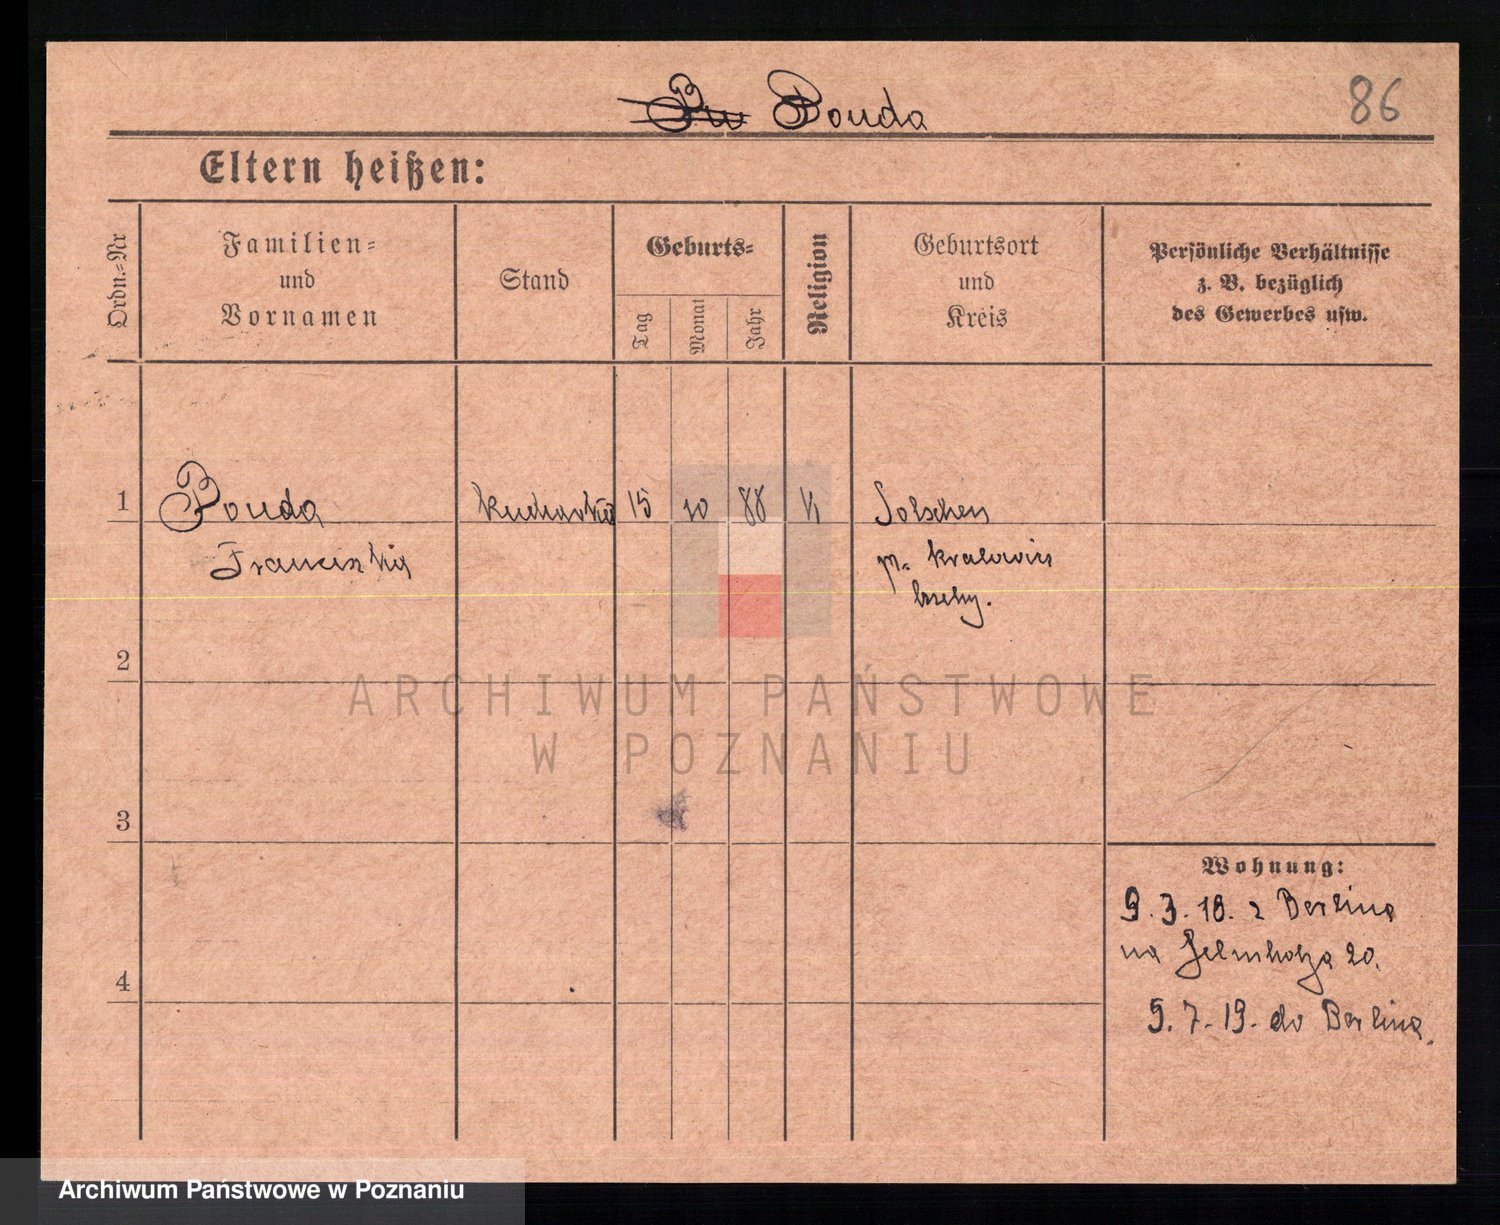 Bouda
86
Eltern heißen:
Ordn.-Nr
Familien-
und
Vornamen
Stand
Geburts-
Tag
Monat
Jahr
Religion
Geburtsort
und
Kreis
Persönliche Verhältnisse
z. B. bezüglich
des Gewerbes usw.
1
Bouda
Kucharka
15
10
88
Solschen
p. Kralowic
Czechy.
Franciszka
2
3
4
Wohnung:
9.3.18. z Berlina
na Helmholza 20.
9.7.19. do Berlina.
ARCHIWUM PAŃSTWOWE
W POZNANIU
Archiwum Państwowe w Poznaniu